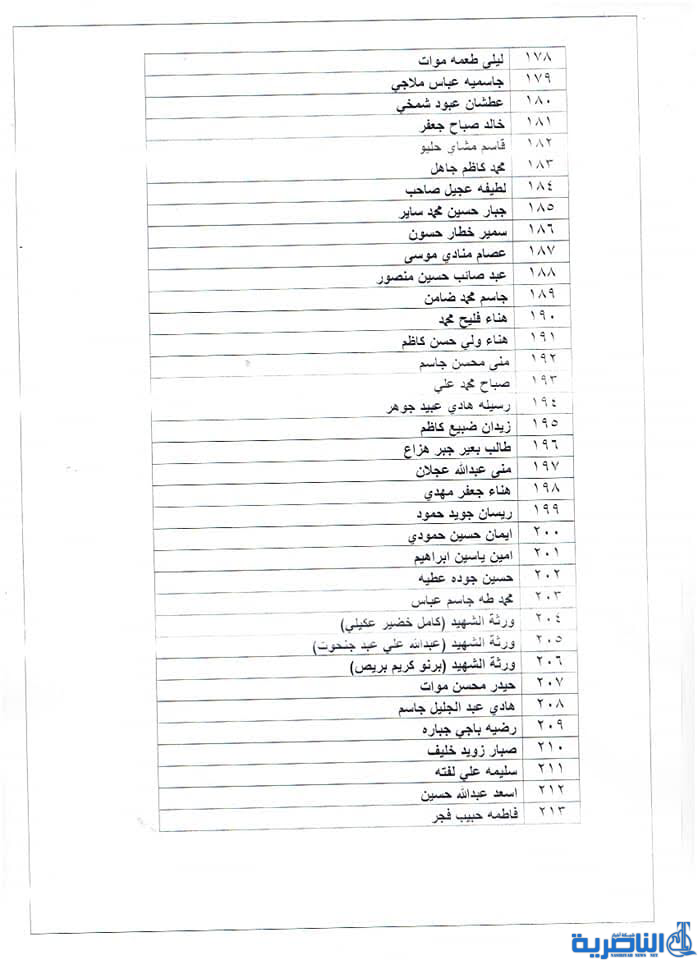 ١٧٨ ليلى طعمه موات
١٧٩ جاسميه عباس ملاجي
١٨٠ عطشان عبود شمخي
١٨١ خالد صباح جعفر
١٨٢ قاسم مشاي حليو
١٨٣ محمد كاظم جاهل
١٨٤ لطيفه عجيل صاحب
١٨٥ جبار حسين محمد ساير
١٨٦ سمير خطار حسون
١٨٧ عصام منادي موسى
١٨٨ عبد صائب حسين منصور
١٨٩ جاسم محمد ضامن
١٩٠ هناء فليح محمد
١٩١ هناء ولي حسن كاظم
١٩٢ منى محسن جاسم
١٩٣ صباح محمد علي
١٩٤ رسيله هادي عبيد جوهر
١٩٥ زيدان ضبيع كاظم
١٩٦ طالب بعير جبر هزاع
١٩٧ منى عبدالله عجلان
١٩٨ هناء جعفر مهدي
١٩٩ ريسان جويد حمود
٢٠٠ ايمان حسين حمودي
٢٠١ امين ياسين ابراهيم
٢٠٢ حسين جوده عطيه
٢٠٣ محمد طه جاسم عباس
٢٠٤ ورثة الشهيد (كامل خضير عكيلي)
٢٠٥ ورثة الشهيد (عبدالله علي عبد جنحوت)
٢٠٦ ورثة الشهيد (برنو كريم بريص)
٢٠٧ حيدر محسن موات
٢٠٨ هادي عبد الجليل جاسم
٢٠٩ رضيه باجي جباره
٢١٠ صبار زويد خليف
٢١١ سليمه علي لفته
٢١٢ اسعد عبدالله حسين
٢١٣ فاطمه حبيب فجر
شبكة أخبار
الناصرية
NASIRIYAH NEWS NET